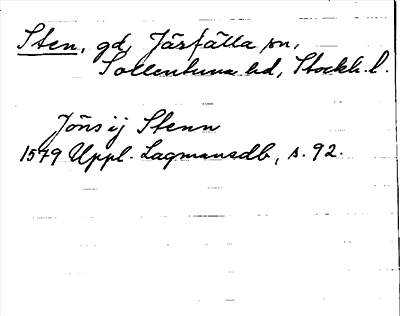 Sten, gd, Järfälla sn,
Sollentuna hd, Stockh. l.
Jöns ij Stenn
1579 Uppl. Lagmansdb, s. 92.